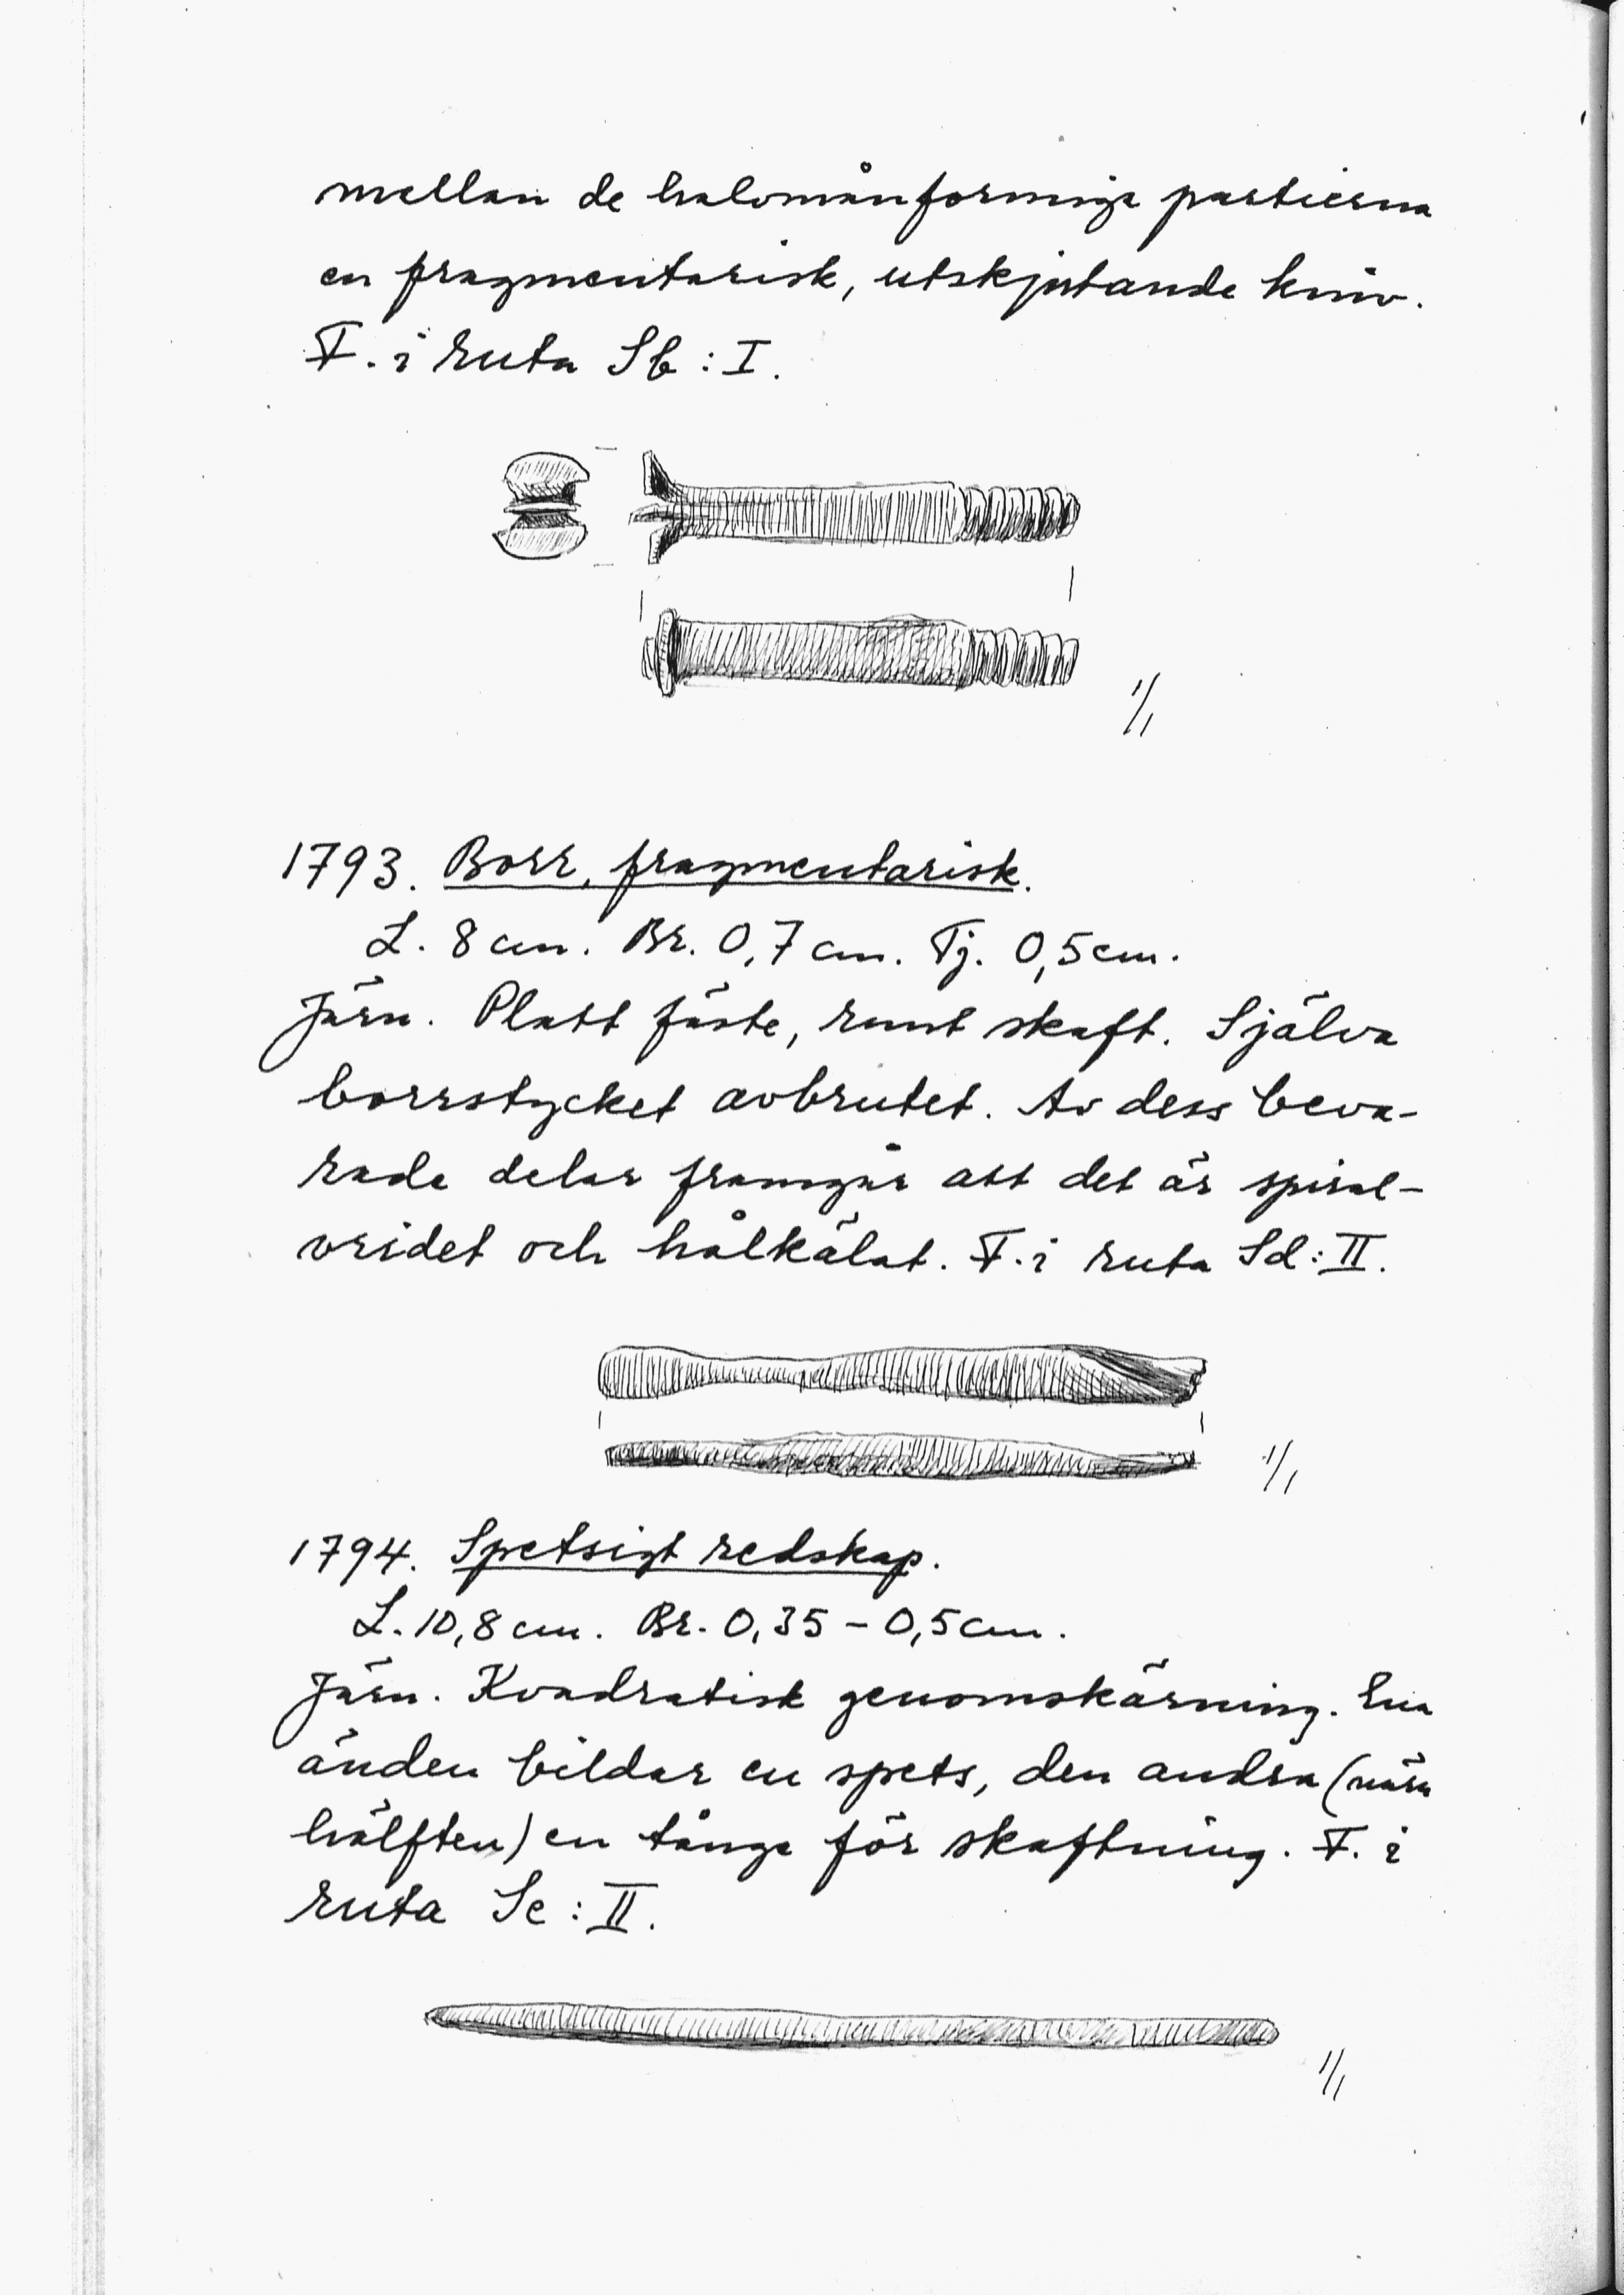 mellan de halvmånformiga partierna
en fragmentarisk, utskjutande kniv.
F. i ruta Sb: I.
1/1
1793. Borr, fragmentarisk.
L. 8 cm. Br. 0,7 cm. Tj. 0,5 cm.
Järn. Platt fäste, runt skaft. Själva
borrstycket avbrutet. Av dess beva-
rade delar framgår att det är spiral-
vridet och hålkälat. F. i ruta Sd: II.
1/1
1794. Spetsigt redskap.
L. 10,8 cm. Br. 0,35 – 0,5 cm.
Järn. Kvadratisk genomskärning. Ena
änden bildar en spets, den andra (nära
hälften) en tånge för skaftning. F. i
ruta Se: II.
1/1